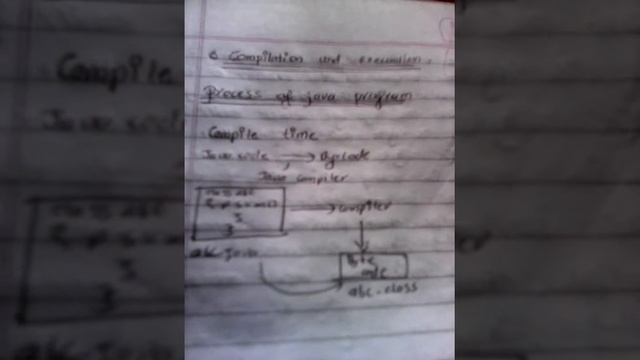 Compilation and execution.
Process of java program
Compile time
Java code → Bytecode
Java compiler
→ compiler
abc.java
Byte
code
abc.class